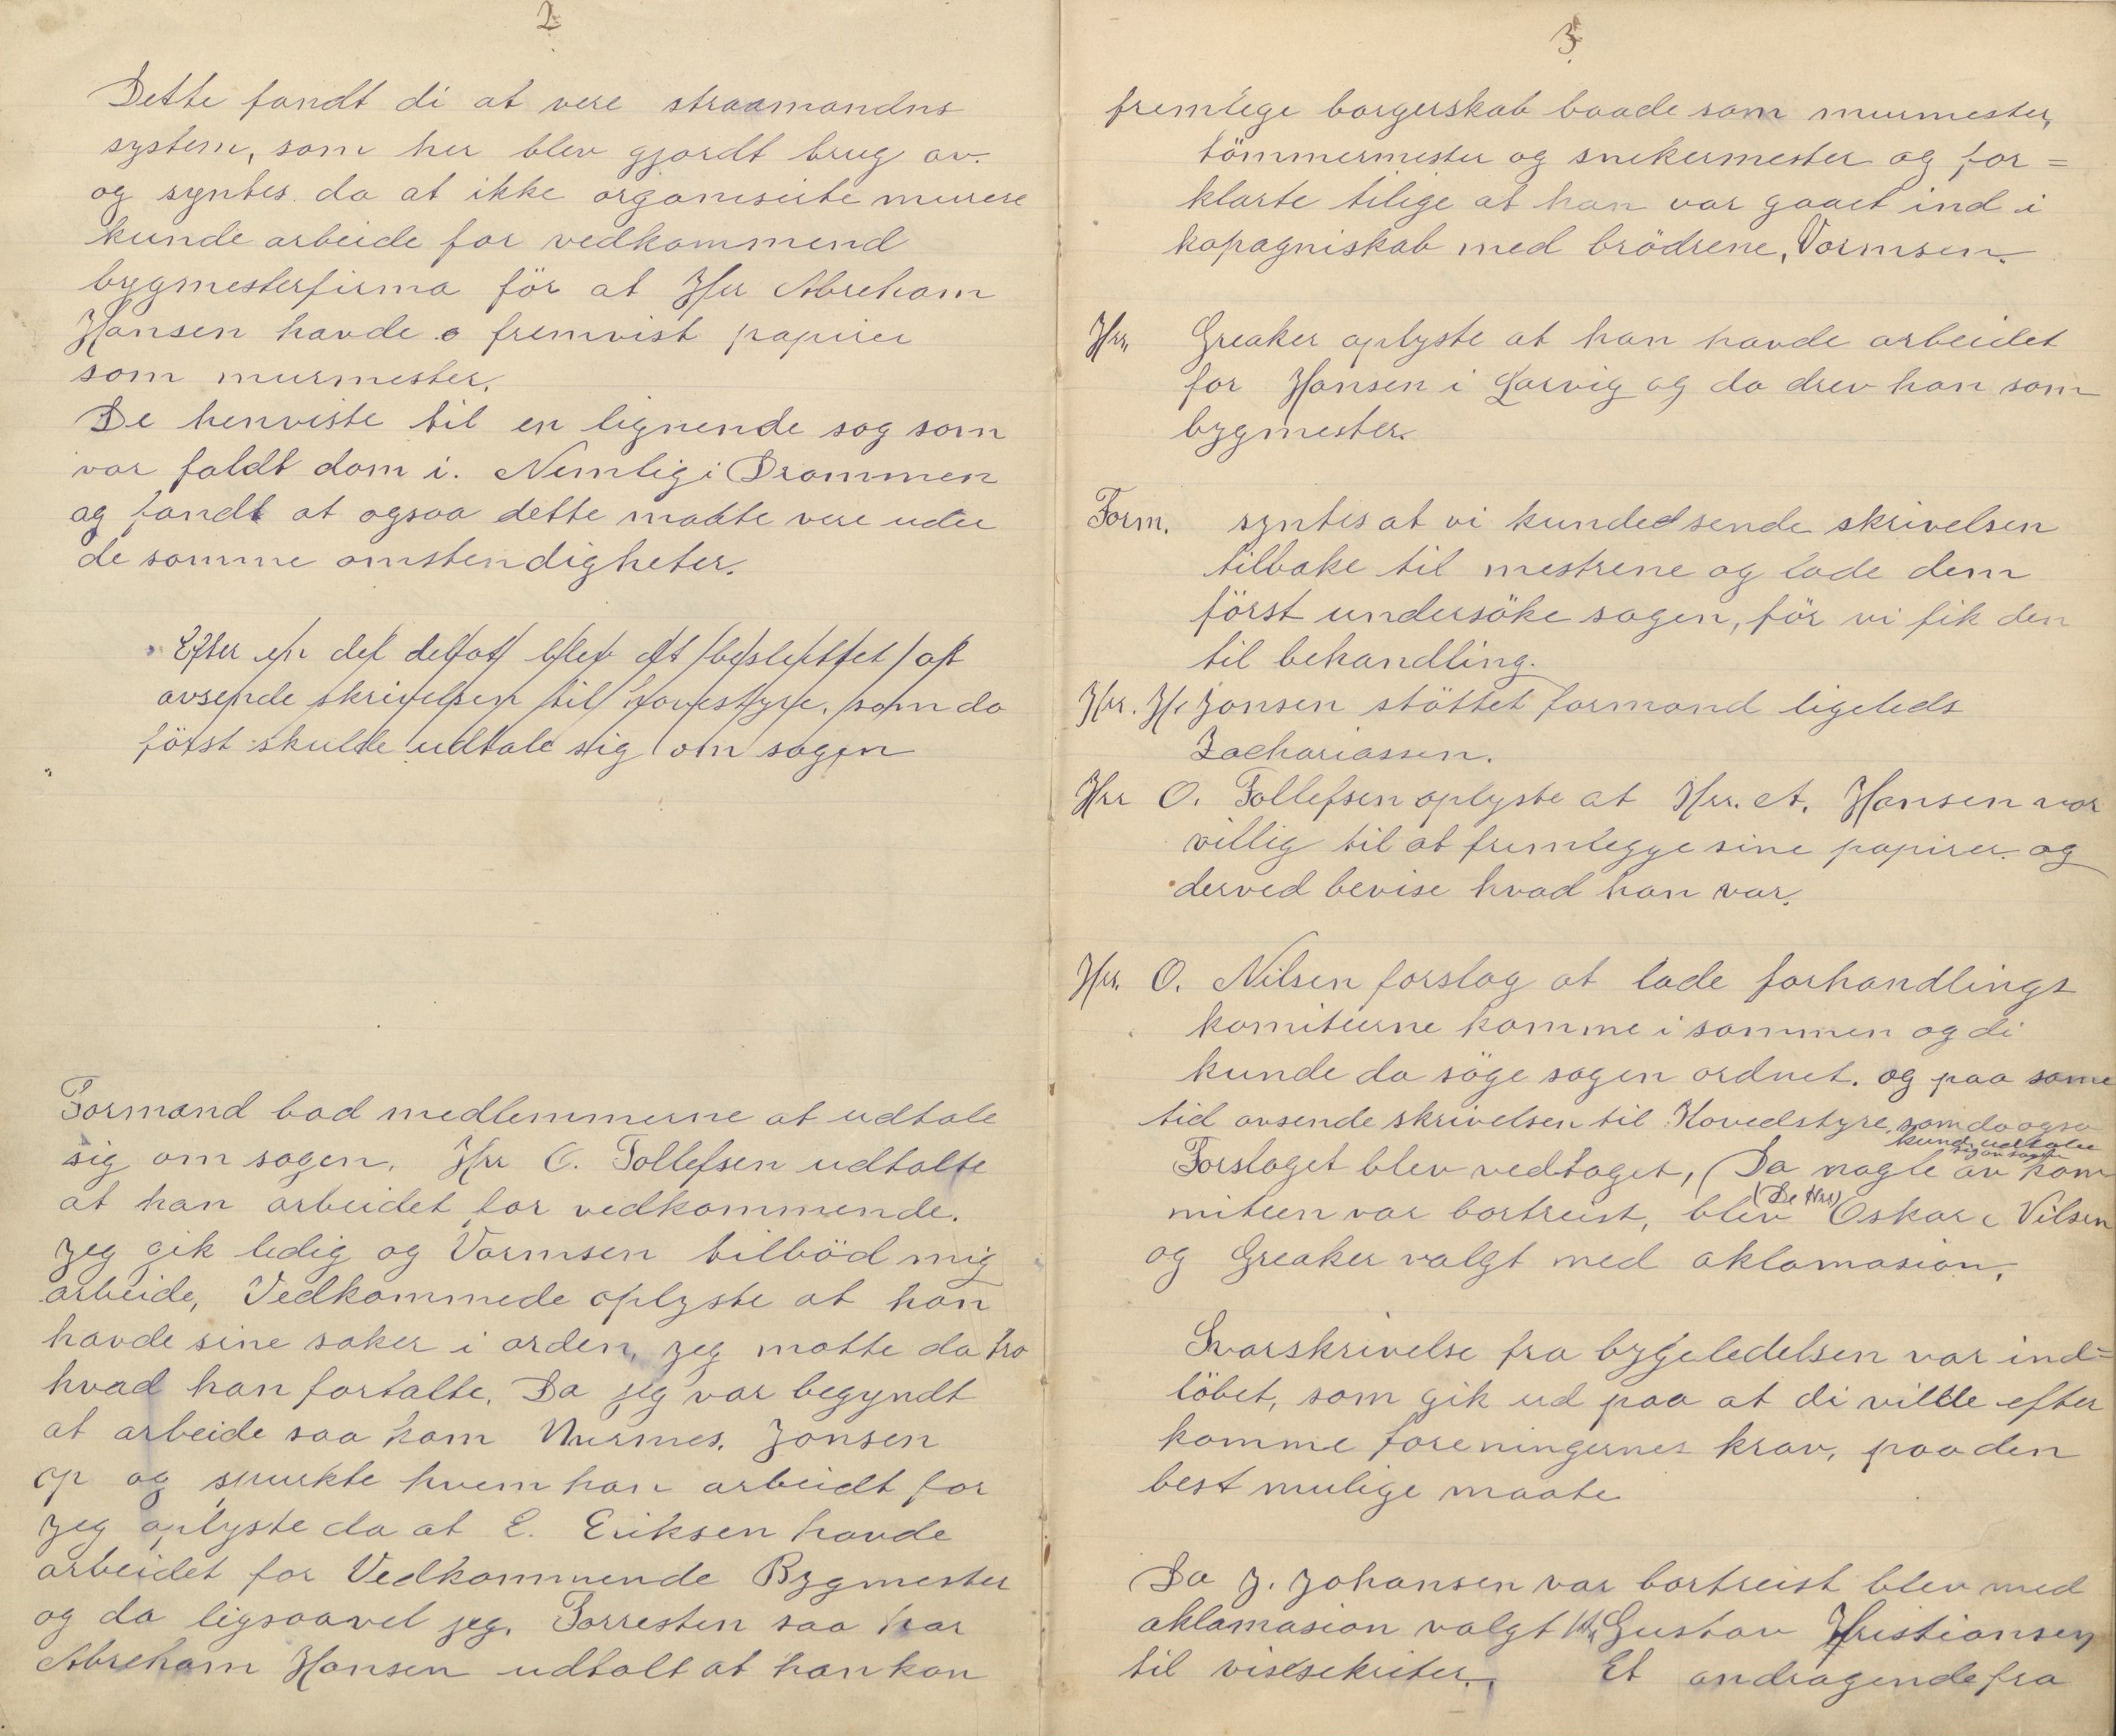 2
Dette fandt di at vere straamandns
system, som her blev gjordt brug av.
og syntes da at ikke organiserte murere
kunde arbeide for vedkommend
bygmesterfirma för at Herr Abreham
Hansen havde fremvist papirer
som murmester.
De henviste til en lignende sag som
var faldt dom i. Nemlig i Drammen
og fandt at ogsaa dette maatte vere uder
de samme omstendigheter.
Efter en del debat blev det besluttet at
avsende skrivelsen til hovestyre, som da
först skulde udtale sig om sagen
Formand bad medlemmerne at udtale
sig om sagen. Hrr O. Tollefsen udtalte
at han arbeidet for vedkommende.
Jeg gik ledig og Vormsen tilböd mig
arbeide, Vedkommede oplyste at han
havde sine saker i orden, jeg motte da tro
hvad han fortalte. Da jeg var begyndt
at arbeide saa kom Murmes. Jonsen
op og spurkte hvem han arbeidt for
Jeg oplyste da at E. Eriksen havde
arbeidet for Vedkommende Bygmester
og da ligsaavel jeg. Forresten saa har
Abreham Hansen udtalt at han kan
3
fremlege borgerskab baade som murmester,
tömmermester og snekermester og for=
klarte tilige at han var gaaet ind i
kopagniskab med brödrene, Vormsen.
Hrr. Greaker oplyste at han havde arbeidet
for Hansen i Larvig og da drev han som
bygmester.
Form. syntes at vi kunde sende skrivelsen
tilbake til mestrene og lade dem
först undersöke sagen, för vi fik den
til behandling.
Hrr. H. Jonsen stöttet formand ligeleds
Zachariassen.
Hrr O. Tollefsen oplyste at Hrr. A. Hansen var
villig til at fremlegge sine papirer og
derved bevise hvad han var.
Hrr. O. Nilsen forslag at lade forhandlings
komiteerne komme i sammen og di
kunde da söge sagen ordnet. og paa same
tid avsende skrivelsen til Hovedstyre, som da ogsa
kund udtale
sig om sagen
Forslaget blev vedtaget, (Da nogle av kom
miteen var bortreist, blev (De Hrr) Oskar Nilsen
og Greaker valgt med aklamasion.
Svarskrivelse fra bygeledelsen var ind=
löbet, som gik ud paa at di vilde efter
komme foreningernes krav, paa den
best mulige maate
Da J. Johansen var bortreist blev med
aklamasion valgt Hr. Gustav Kristiansen
til visesekriter. Et andragende fra